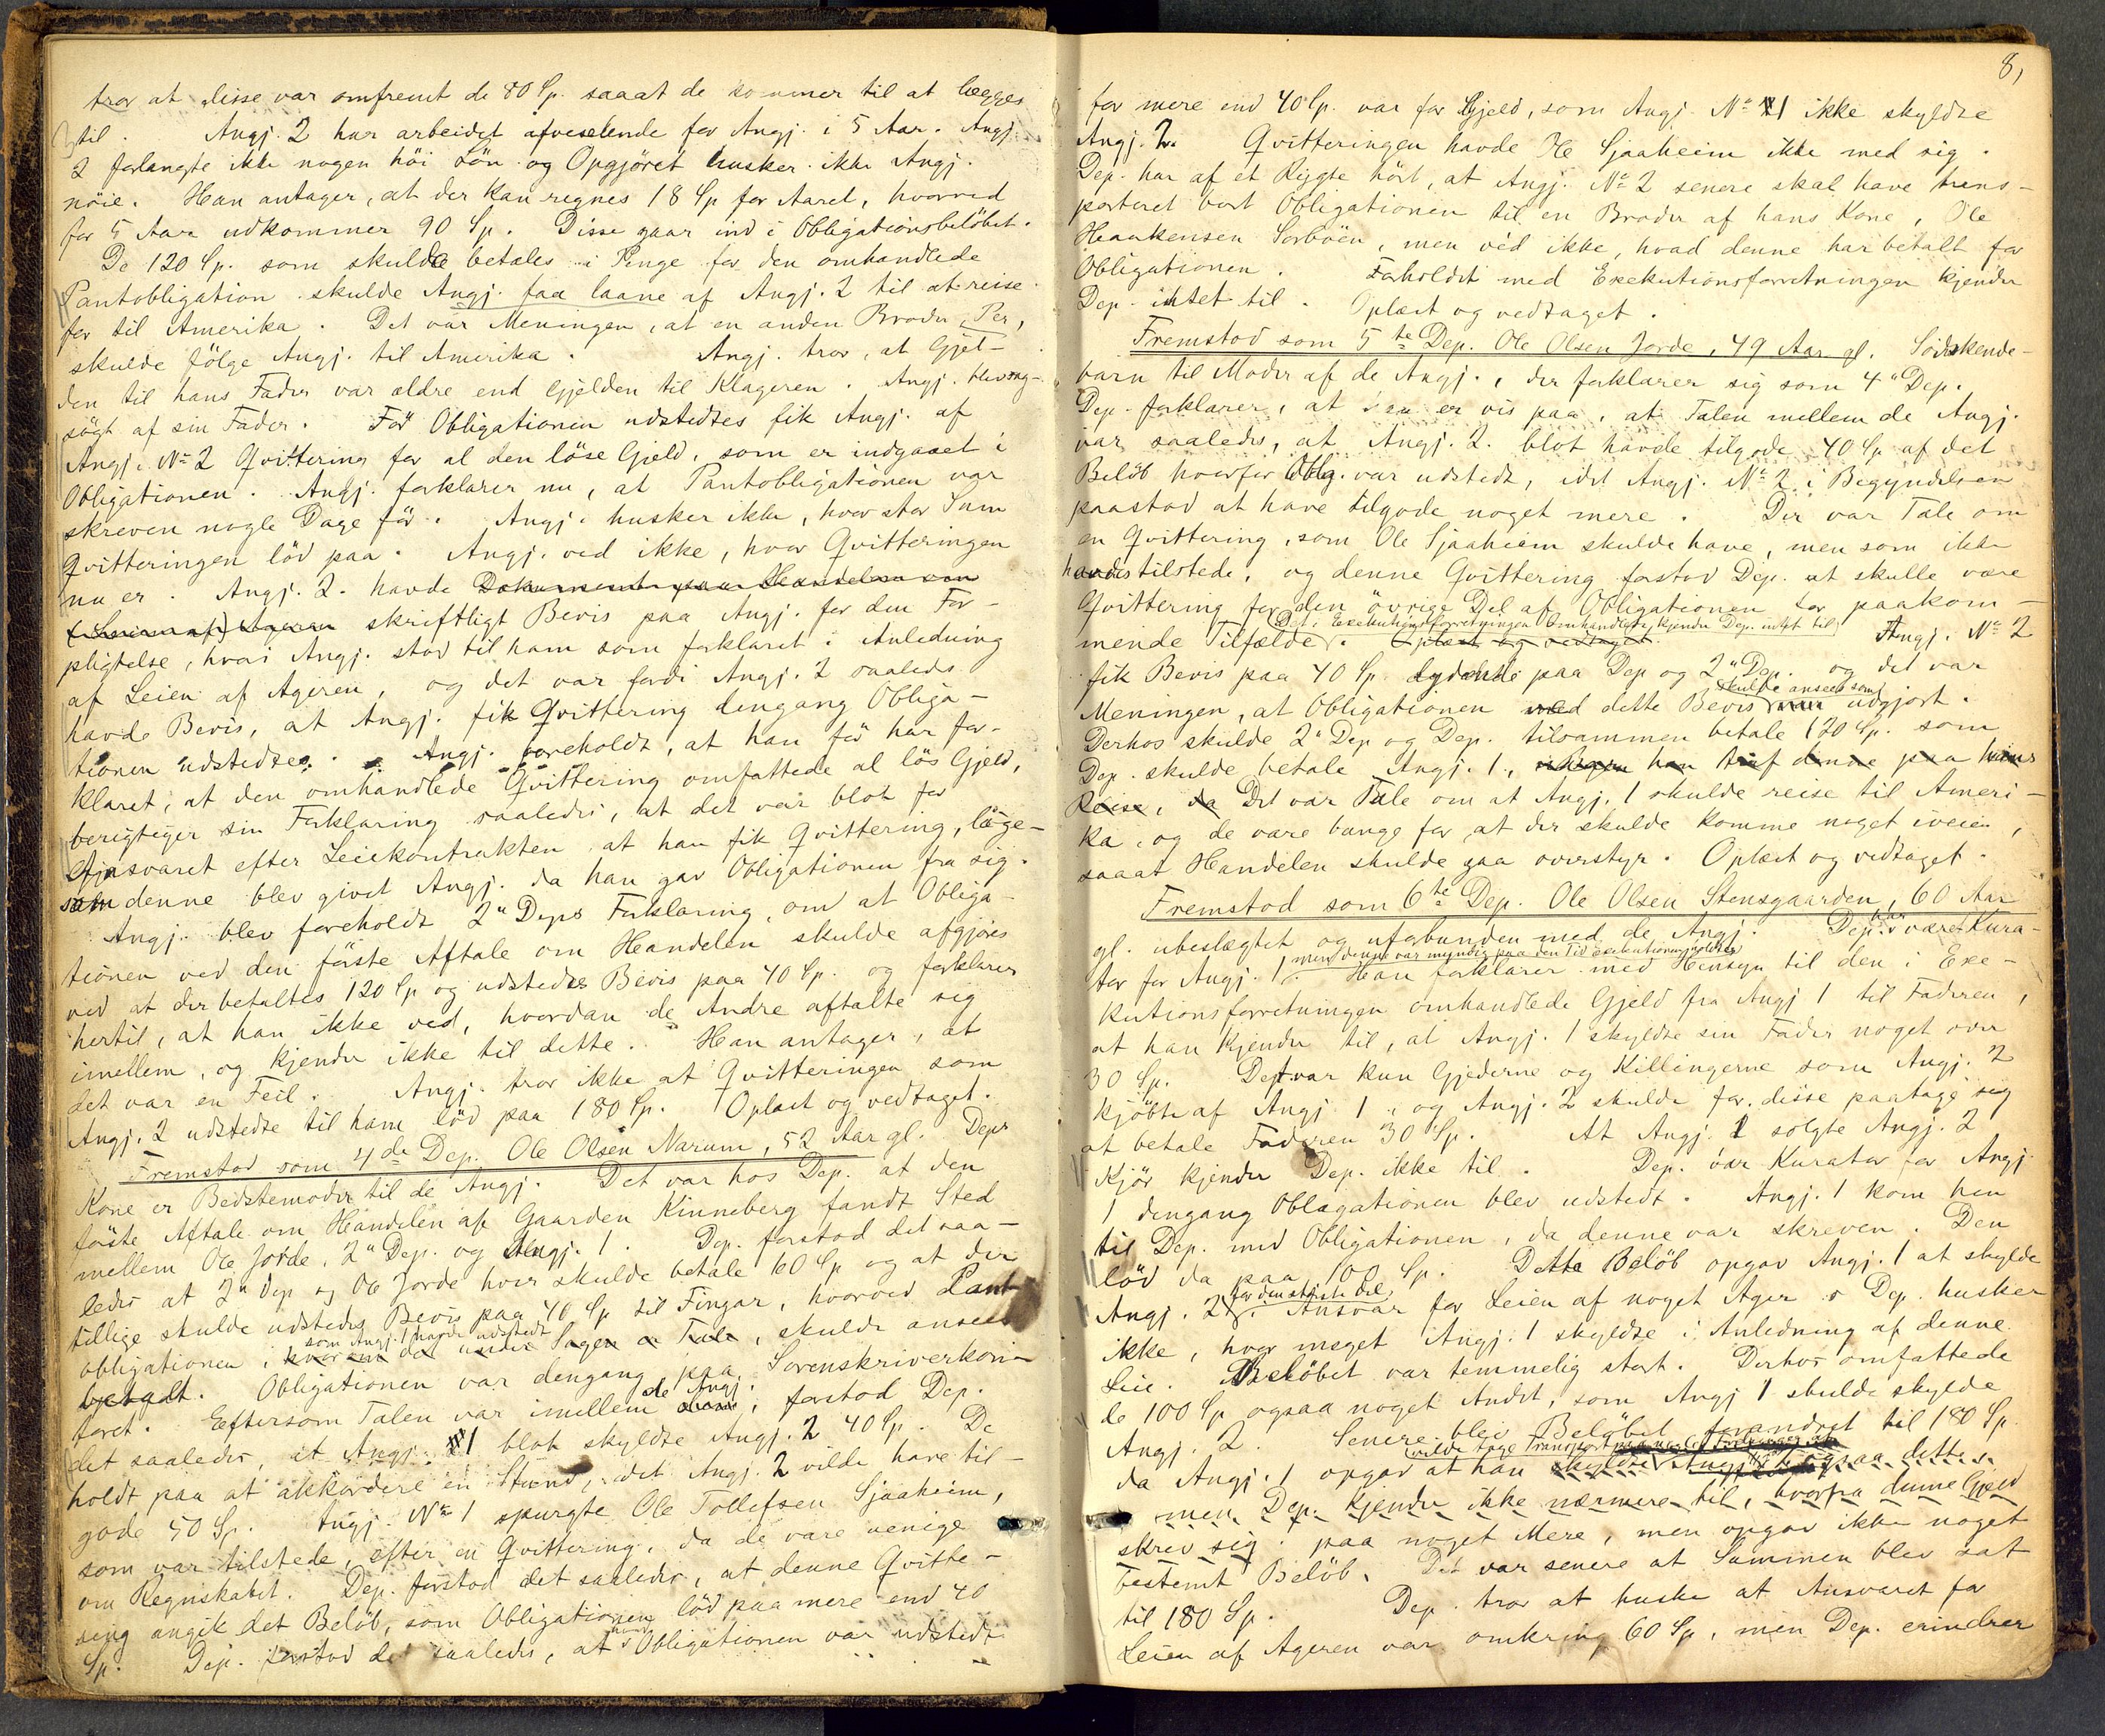 tror at disse var omfremt de 80 Sp. saaat de kommer til at lægges
til. Angj. 2 har arbeidet afvexlende for Angj. i 5 Aar. Angj.
2 forlangte ikke nogen höi Lön og Opgjöret husker ikke Angj.
nöie. Han antager, at der kan regnes 18 Sp for Aaret, hvorved
for 5 Aara udkommer 90 Sp. Disse gaar ind i Obligationsbelöbet.
De 120 Sp. som skulde betales i Penge for den omhandlede
Pantobligation skulde Angj. faa laane af Angj. 2 til at reise
for til Amerika. Det var Meningen, at en anden Broder, Per,
skulde fölge Angj. til Amerika. Angj. tror, at Gjel-
den til hans Fader var ældre end Gjelden til Klageren. Angj. blev sag-
sögt af sin Fader. För Obligationen udstedtes fik Angj. af
Angj. No 2 Qvittering for al den löse Gjeld, som er indgaaet i
Obligationen. Angj. forklarer nu, at Pantobligationen var
skreven nogle Dage för. Angj. husker ikke, hvor stor Sum
Qvitteringen löd paa. Angj. ved ikke, hvor Qvitteringen
nu er. Angj. 2. havde Dokument paa Handelen som
skriftligt Bevis paa Angj. for den For-
pligtelse, hvori Angj. stod til ham som forklaret i Anledning
af Leien af Ageren, og det var fordi Angj. 2 saaledes
havde Bevis, at Angj. fik Qvittering dengang Obliga-
tionen udstedtes. Angj. foreholdt, at han för har for-
klaret, at den omhandlede Qvittering omfattede al lös Gjeld,
berigtiger sin Forklaring saaledes, at det var blot for
Ansvaret efter Leiekontrakten at han fik Qvittering, lige-
som denne blev givet Angj. da han gav Obligationen fra sig.
Angj. blev foreholdt 2" Deps Forklaring, om at Obliga-
tionen ved den förste Aftale om Handelen skulde afgjöres
ved at der betaltes 120 Sp og udstedes Bevis paa 40 Sp. og forklarer
hertil, at han ikke ved, hvordan de Andre aftalte sig
imellem, og kjender ikke til dette. Han antager, at
det var en Feil. Angj. tror ikke at Qvitteringen som
Angj. 2 udstedte til ham löd paa 180 Sp. Oplæst og vedtaget.
Fremstod som 4de Dep. Ole Olsen Narum, 52 Aar gl. Deps
Kone er Bedstemoder til de Angj. Det var hos Dep. at den
förste Aftale om Handelen af Gaarden Kinneberg fandt Sted
mellem Ole Jorde, 2" Dep. og Angj. 1. Dep. forstod det saa-
ledes at 2" Dep og Ole Jorde hver skulde betale 60 Sp og at der
tillige skulde udstedes Bevis paa 40 Sp til Fingar, hvorved Pant
obligationen, som Angj. 1 havde udstedt hvorom der under Sagen er Tale, skulde ansees
betalt. Obligationen var dengang paa Sorenskriverkon-
toret. Eftersom Talen var imellem de Angj. forstod Dep.
det saaledes, at Angj. 1 blot skyldte Angj. 2 40 Sp. De
holdt paa at akkordere en Stund, idet Angj. 2 vilde have til-
gode 50 Sp. Angj. No 1 spurgte Ole Tollefsen Sjaaheim,
som var tilstede, efter en Qvittering, da de vare uenige
om Regnskabet. Dep. forstod det saaledes, at denne Qvitte-
ring angik det Belöb, som Obligationen löd paa mere end 40
Sp. Dep. forstod det saaledes, at hvad Obligationen var udstedt
8,
for mere end 40 Sp. var for Gjeld, som Angj. No 1 ikke skyldte
Angj. 2. Qvitteringen havde Ole Sjaaheim ikke med sig.
Dep. har af et Rygte hört, at Angj. No 2 senere skal have trans-
porteret bort Obligationen til en Broder af hans Kone, Ole
Haakensen Sorböen, men ved ikke, hvad denne har betalt for
Obligationen. Forholdet med Exekutionsforretningen kjender
Dep. intet til. Oplæst og vedtaget.
Fremstod som 5te Dep. Ole Olsen Jorde, 49 Aar gl. Södskende-
barn til Moder af de Angj., der forklarer sig som 4" Dep.
Dep. forklarer, at han er vis paa, at Talen mellem de Angj.
var saaledes, at Angj. 2. blot havde tilgode 40 Sp af det
Belöb hvorfor Oblig. var udstedt, idet Angj. No 2 i Begyndelsen
paastod at have tilgode noget mere. Der var Tale om
en Qvittering, som Ole Sjaaheim skulde have, men som ikke
havdes tilstede, og denne Qvittering forstod Dep. at skulle være
Qvittering for den övrige Del af Obligationen for paakom-
mende Tilfælde. Det i Exekutionsforretningen Omhandlede, kjender Dep. intet til. Oplæst og vedtaget. Angj. No 2
fik Bevis paa 40 Sp. lydende paa Dep og 2" Dep. og det var
Meningen, at Obligationen med dette Bevis skulde ansees som udgjort.
Derhos skulde 2" Dep og Dep. tilsammen betale 120 Sp. som
Dep. skulde betale Angj. 1., han traf denne paa hans
Reise, da Det var Tale om at Angj. 1 skulde reise til Ameri-
ka, og de vare bange for, at der skulde komme noget iveien,
saaat Handelen skulde gaa overstyr. Oplæst og vedtaget.
Fremstod som 6te Dep. Ole Olsen Stensgaarden, 60 Aar
gl. ubeslægtet og uforbunden med de Angj. Dep. har været Kura-
tor for Angj. 1. men denne var myndig paa den Tid Exekutionen holdtes Han forklarer med Hensyn til den i Exe-
kutionsforretningen omhandlede Gjeld fra Angj 1 til Faderen,
at han kjender til, at Angj. 1 skyldte sin Fader noget over
30 Sp. Det var kun Gjederne og Killingerne som Angj. 2
kjöbte af Angj. 1, og Angj. 2 skulde for disse paatage sig
at betale Faderen 30 Sp. At Angj. 1 solgte Angj. 2
Kjör kjender Dep. ikke til. Dep. var Kurator for Angj
1 dengang Oblagationen blev udstedt. Angj. 1 kom hen
til Dep. med Obligationen, da denne var skreven. Den
löd da paa 100 Sp. Dette Belöb opgav Angj. 1 at skylde
Angj. 2 for den störste Del Ansvar for Leien af noget Ager. Dep. husker
ikke, hvor meget Angj. 1 skyldte i Anledning af denne
Leie. Belöbet var temmelig stort. Derhos omfattede
de 100 Sp ogsaa noget Andet, som Angj 1 skulde skylde
Angj. 2. Senere blev Belöbet forandret til 180 Sp.
da Angj. 1 opgav at han vilde tage Transport skyldte Angj. ogsaa dette,
men Dep. kjender ikke nærmere til, hvorfra denne Gjeld
skrev sig. paa noget Mere, men opgav ikke noget
bestemt Belöb. Det var senere at Summen blev sat
til 180 Sp. Dep. tror at huske at Ansvaret for
Leien af Ageren var omkring 60 Sp, men Dep. erindrer